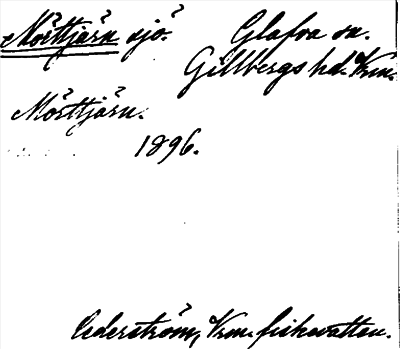 Mörttjärn sjö. Glafva sn.
Gillbergs hd. Vrm.
Mörttjärn.
1896.
Cederström, Vrm. fiskevatten.